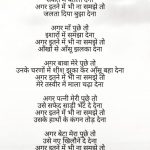 अगर इतने में भी ना समझे तो
जलता दिया बुझा देना
अगर माँ पूछे तो
इशारों में समझा देना
अगर इतने में भी ना समझे तो
आँखों से आँसू छलका देना
अगर बाबा मेरे पूछे तो
उनके चरणों में शीश झुका कर आँसू बहा देना
अगर इतने में भी ना समझे तो
मेरे तस्वीर में माला चढ़ा देना
अगर पत्नी मेरी पूछे तो
उसे सफेद साड़ी भेंट दे देना
अगर इतने में भी ना समझे तो
उसके हाथों के कंगन तोड़ देना
अगर बेटा मेरा पूछे तो
उसे नए खिलौने दे देना
अगर इतने में भी ना समझे तो